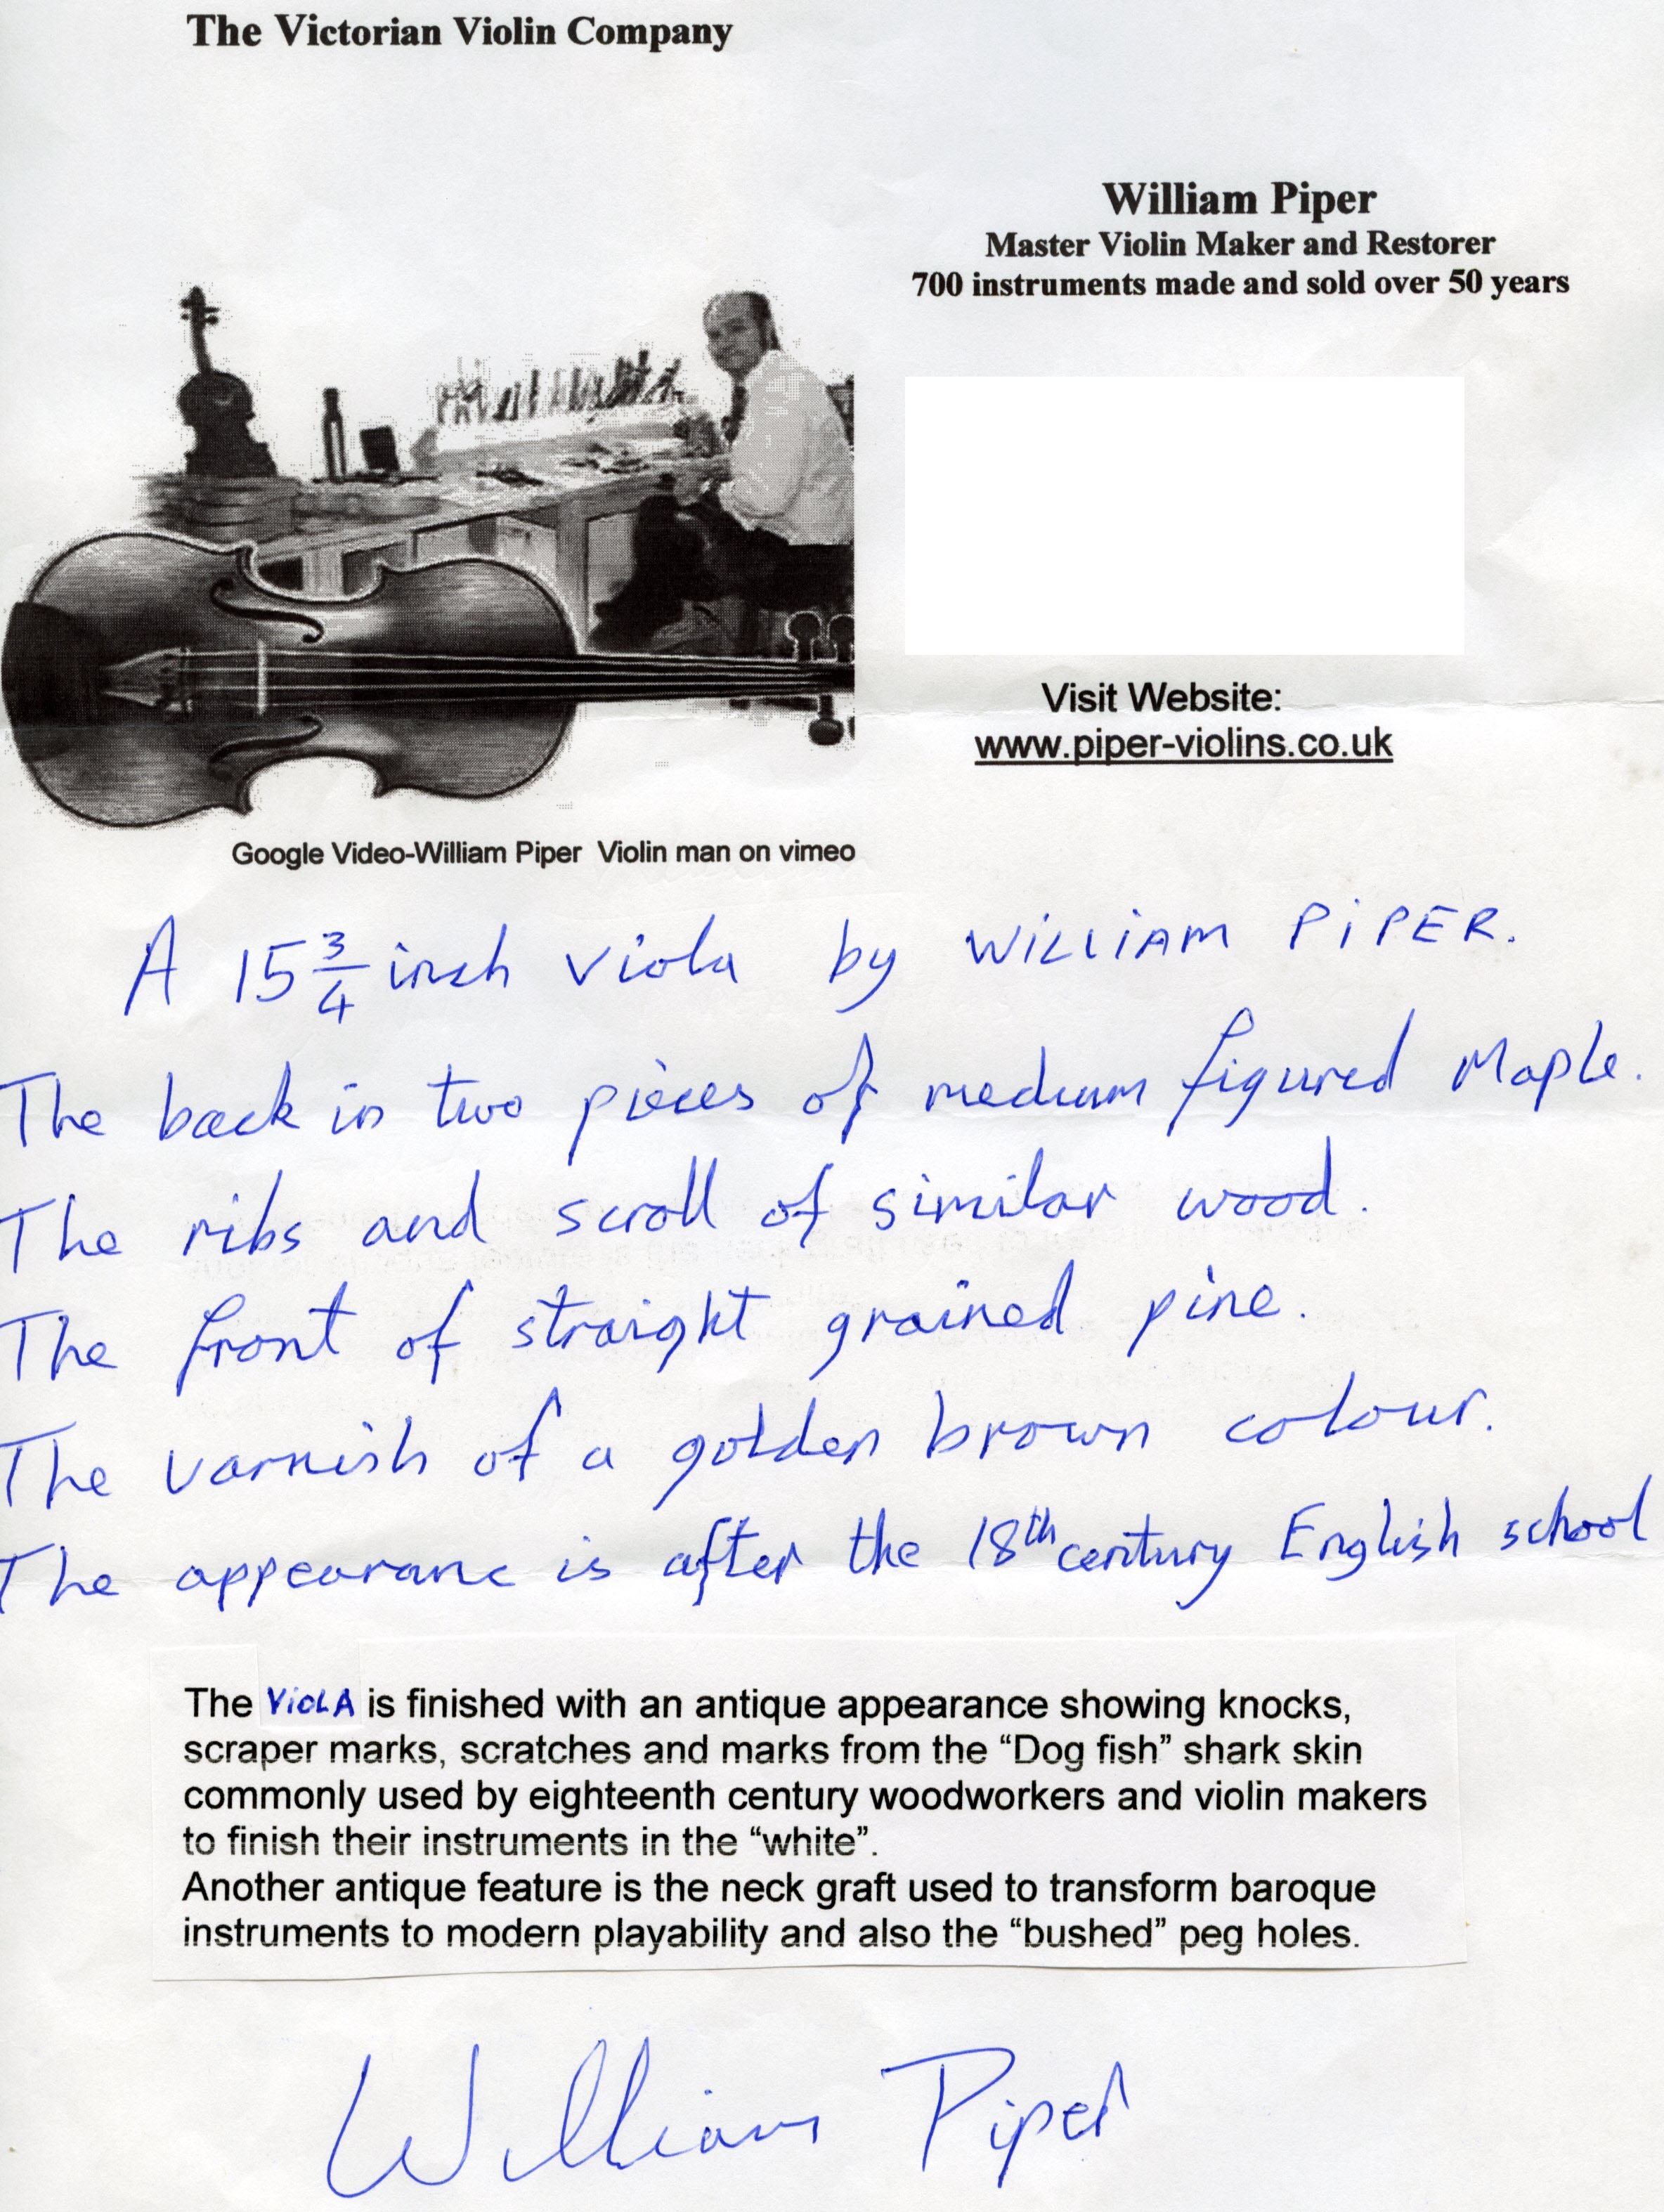 The Victorian Violin Company
William Piper
Master Violin Maker and Restorer
700 instruments made and sold over 50 years
Visit Website:
www.piper-violins.co.uk
Google Video-William Piper Violin man on vimeo
A 15 3/4 inch viola by WiLLiAM PiPER.
The back in two pieces of medium figured Maple.
The ribs and scroll of similar wood.
The front of straight grained pine.
The varnish of a golden brown colour.
The appearanc is after the 18th century English school
The ViOLA is finished with an antique appearance showing knocks,
scraper marks, scratches and marks from the “Dog fish” shark skin
commonly used by eighteenth century woodworkers and violin makers
to finish their instruments in the “white”.
Another antique feature is the neck graft used to transform baroque
instruments to modern playability and also the “bushed” peg holes.
William Piper